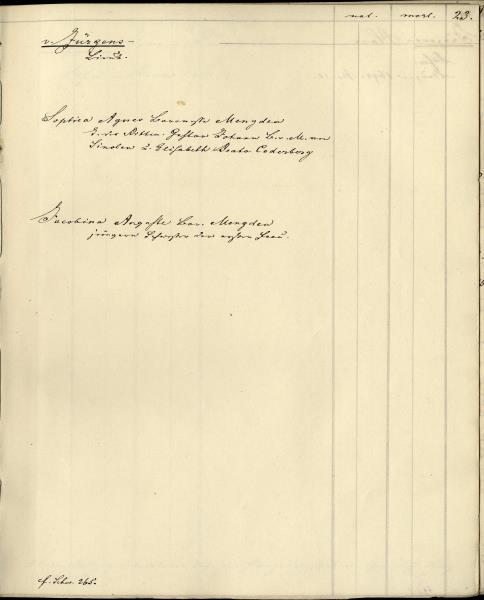 nat. mort. 23.
v. Jürgens
Lieut.
Sophia Agnes Baronesse Mengden
T. des Rittm. Gustav Johann B. v. M. von
Sinolen u. Elisabeth Beata Cederberg
Jacobina Auguste Bar. Mengden
jüngere Schwester der ersten Frau.
cf. Schw. 265.